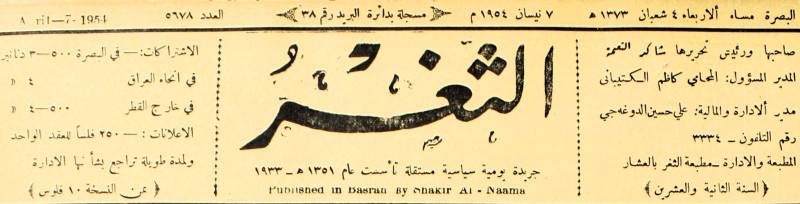 البصرة مساء الاربعاء ٤ شعبان ١٣٧٣ هـ
٧ نيسان ١٩٥٤ م
مسجلة بدائرة البريد رقم ٣٨
العدد ٥٦٧٨
A ril-7-1954
صاحبها ورئيس تحريرها شاكر النعمة
المدير المسؤول: المحامي كاظم الكتيباني
مدير الادارة والمالية: علي حسين الدوغه جي
رقم التلفون ـ ٣٣٣٤
المطبعة والادارة ـ مطبعة الثغر بالعشار
﴿ السنة الثانية والعشرين ﴾
الثغر
جريدة يومية سياسية مستقلة تأسست عام ١٣٥١ هـ ـ ١٩٣٣
Published in Basrah By Shakir Al - Naama
الاشتراكات: ـ في البصرة ٥٠٠ـ٣ دنانير
في انحاء العراق ٤ »
في خارج القطر ٥٠٠ـ٤ »
الاعلانات : ـ ٢٥٠ فلساً للعقد الواحد
ولمدة طويلة تراجع بشأنها الادارة
﴿ ثمن النسخة ١٠ فلوس ﴾